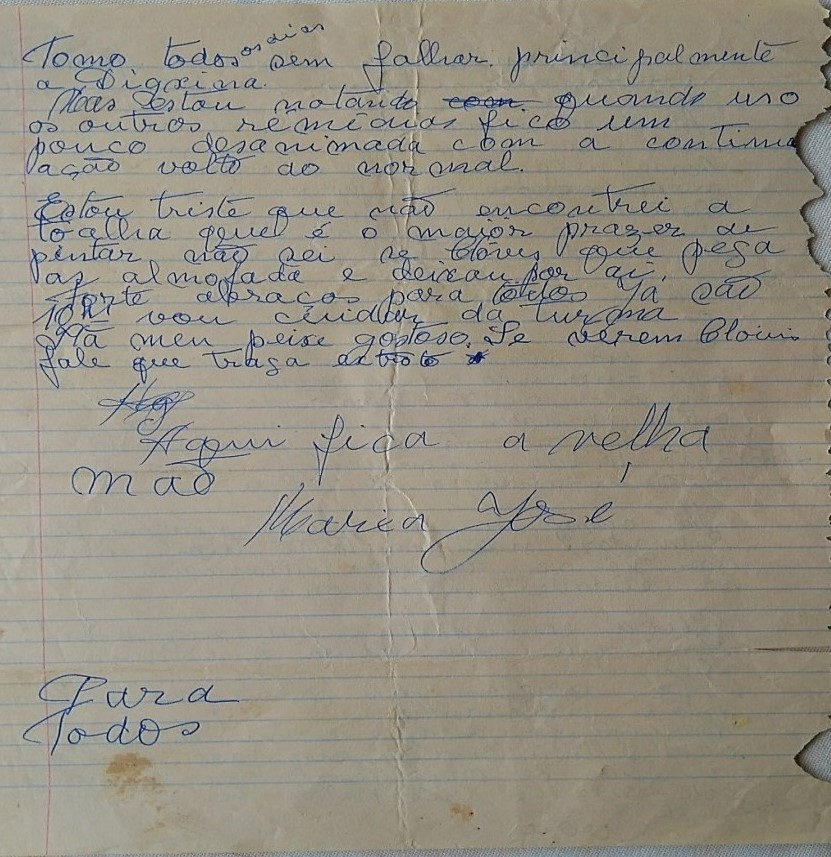 Tomo todos os dias sem falhar. principalmente
a Digoxina.
Mas Estou notando com quando uso
os outros remédios fico um
pouco desanimada com a continu
ação volto ao normal.
Estou triste que não encontrei a
toalha é o maior prazer de
pintar não sei se Clóvis que pega
as almofada e deixau por ai.
Forte abraços para todos Já são
10hs vou cuidar da turma
meu peixe gostoso. Se verem Clovis
fale que traga
Aqui fica a velha
mão
Maria José
Para
Todos